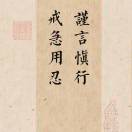 謹言慎行
戒急用忍